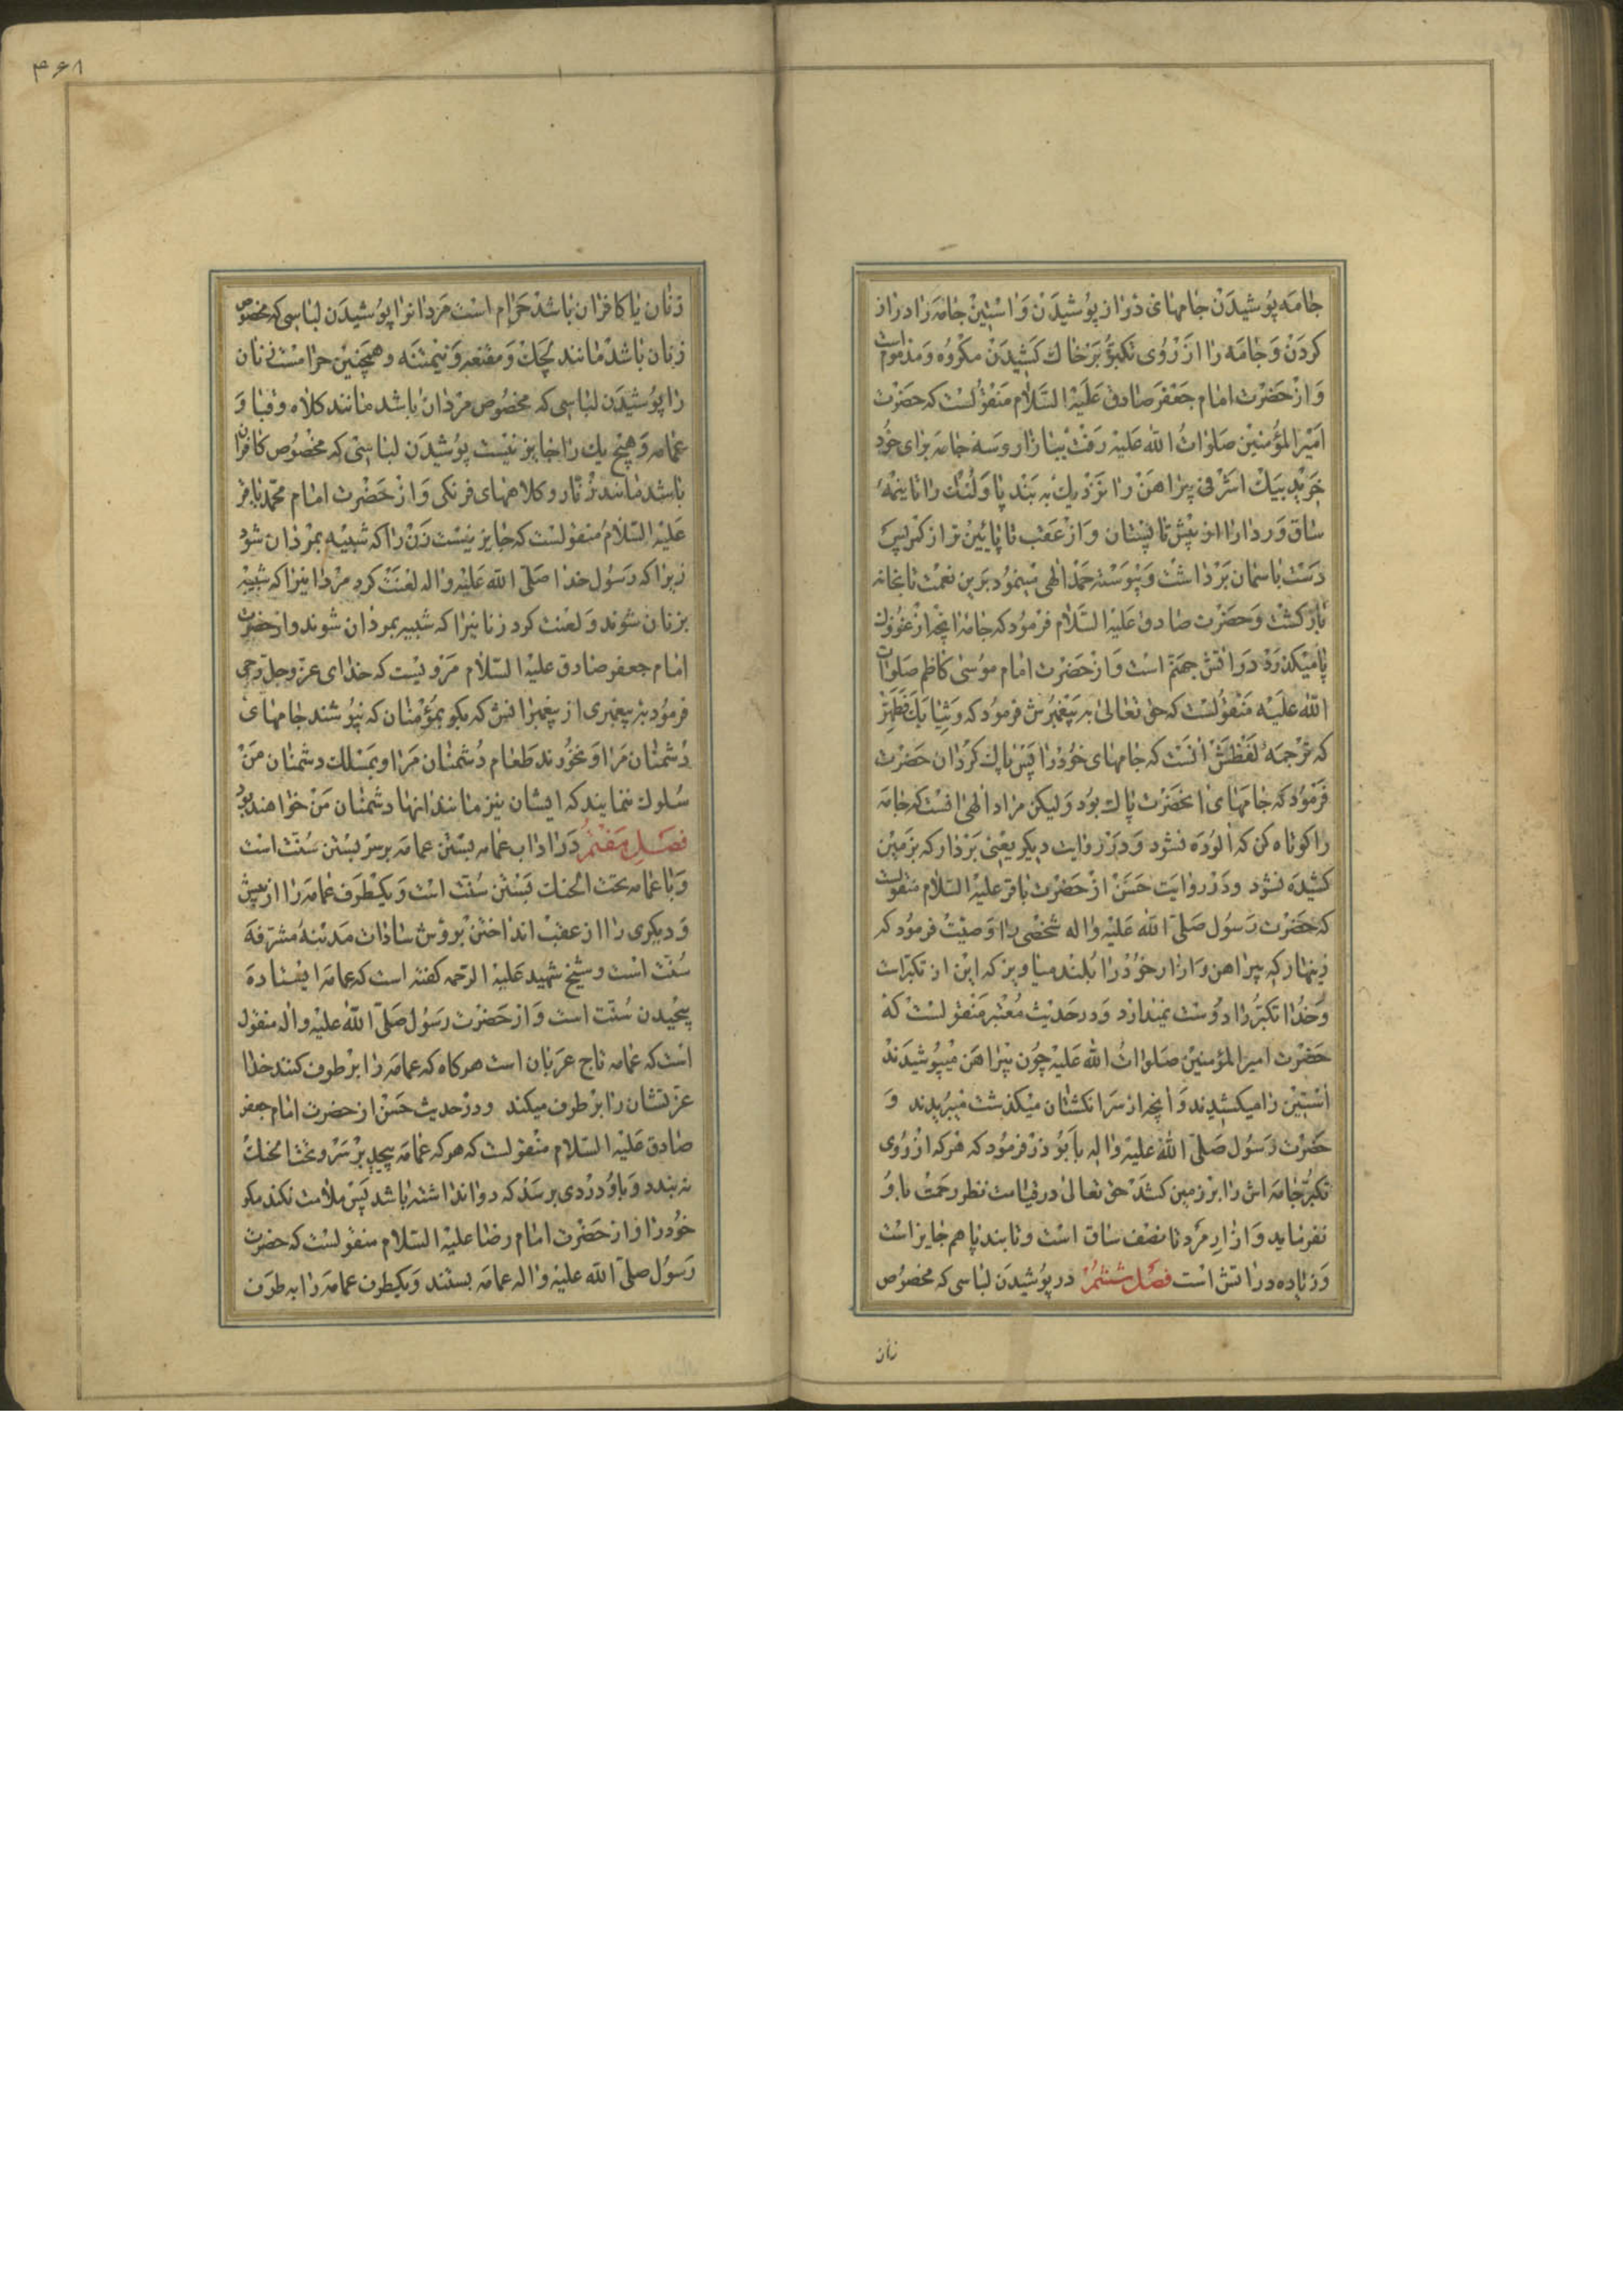 جامه پوشیدن جامهای دراز پوشیدن و استین جامه را دراز
کردن و جامه را از روی تکبر بر خاک کشیدن مکروه و مذموم است
و از حضرت امام جعفر صادق علیه السلام منقولست که حضرت
امیر المؤمنین صلوات الله علیه رفت ببازار و سه جامه برای خود
خرید بیک اشرفی پیراهن را نزدیک به بند پا و لنک را تا نیمه
ساق و ردا را از پیش تا پستان و از عقب تا پایین تر از کمر پس
دست باسمان برداشت و پیوسته حمد الهی مینمود برین نعمت تا بخانه
بازکشت و حضرت صادق علیه السلام فرمود که جامه انچه از غوزک
پا میکذرد در اتش جهنم است و از حضرت امام موسی کاظم صلوات
الله علیه منقولست که حق تعالی به پیغمبرش فرمود که و ثیابک فطهر
که ترجمه لفظش انست که جامهای خود را پس پاک کردان حضرت
فرمود که جامهای انحضرت پاک بود ولیکن مراد الهی انست که جامه
را کوتاه کن که الوده نشود و در روایت دیکر یعنی بردار که بزمین
کشیده نشود و در روایت حسن از حضرت باقر علیه السلام منقولست
که حضرت رسول صلی الله علیه واله شخصی را وصیت فرمود که
زینهار که پیراهن و ازار خود را بلند میاویز که این از تکبر است
و خدا تکبر را دوست نمیدارد و در حدیث معتبر منقولست که
حضرت امیر المؤمنین صلوات الله علیه چون پیراهن میپوشیدند
استین را میکشیدند و انچه از سر انکشتان میکذشت میبریدند و
حضرت رسول صلی الله علیه واله بابوذر فرمود که هرکه از روی
تکبر جامه اش را بر زمین کشد حق تعالی در قیامت نظر رحمت باو
نفرماید و ازار مرد تا نصف ساق است و تا بند پا هم جایز است
و زیاده در اتش است فصل ششم در پوشیدن لباسی که مخصوص
زنان
۴۶۸
زنان یا کافران باشد حرام است مردانرا پوشیدن لباسی که مخصوص
زنان باشد مانند لچک و مقنعه و نیمتنه و همچنین حرامست زنان
را پوشیدن لباسی که مخصوص مردان باشد مانند کلاه و قبا و
عمامه و هیچ یک را جایز نیست پوشیدن لباسی که مخصوص کافران
باشد مانند زنار و کلاههای فرنکی و از حضرت امام محمد باقر
علیه السلام منقولست که جایز نیست زن را که شبیه بمردان شود
زیرا که رسول خدا صلی الله علیه واله لعنت کرد مردانیرا که شبیه
بزنان شوند و لعنت کرد زنانیرا که شبیه بمردان شوند و از حضرت
امام جعفر صادق علیه السلام مرویست که خدای عز وجل وحی
فرمود به پیغمبری از پیغمبرانش که بکو بمؤمنان که نپوشند جامهای
دشمنان مرا و نخورند طعام دشمنان مرا و بمسلک دشمنان من
سلوک ننمایند که ایشان نیز مانند انها دشمنان من خواهند بود
فصل هفتم در اداب عمامه بستن عمامه بر سر بستن سنت است
و با عمامه تحت الحنک بستن سنت است و یکطرف عمامه را از پیش
و دیکری را از عقب انداختن بروش سادات مدینه مشرفه
سنت است و شیخ شهید علیه الرحمه کفته است که عمامه را ایستاده
پیچیدن سنت است و از حضرت رسول صلی الله علیه واله منقول
است که عمامه تاج عربان است هرکاه که عمامه را برطرف کنند خدا
عزتشان را برطرف میکند و در حدیث حسن از حضرت امام جعفر
صادق علیه السلام منقولست که هرکه عمامه پیچد بر سر و تحت الحنک
نه بندد و باو دردی برسد که دوا نداشته باشد پس ملامت نکند مکر
خود را و از حضرت امام رضا علیه السلام منقولست که حضرت
رسول صلی الله علیه واله عمامه بستند و یکطرف عمامه را به طرف